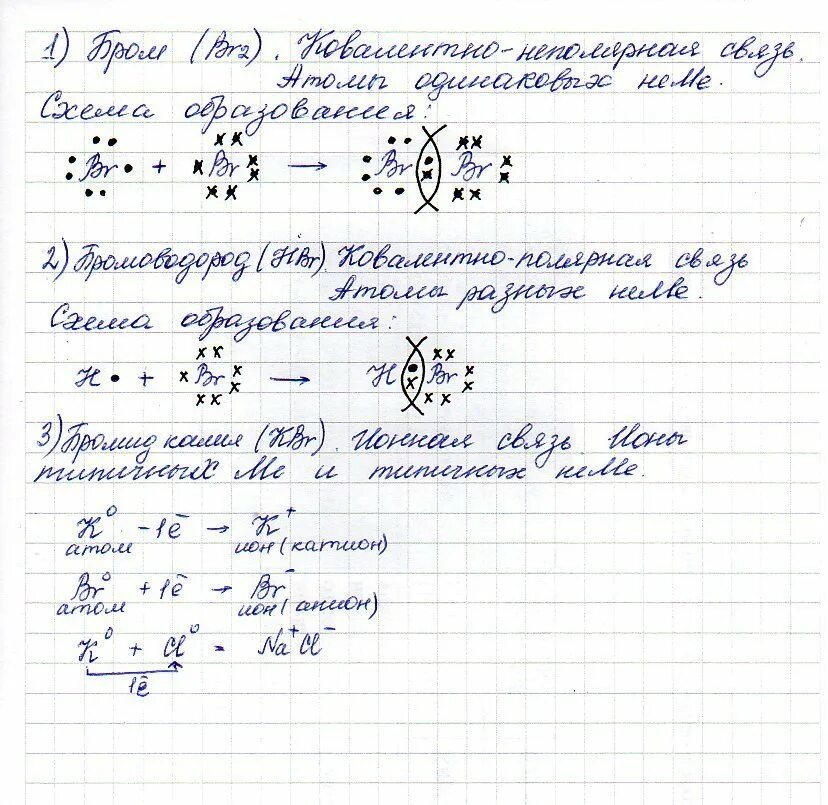 1) Бром (Br2). Ковалентно-неполярная связь.
Атомы одинаковых неМе.
Схема образования:
Br + Br → Br Br
2) Бромоводород (HBr). Ковалентно-полярная связь
Атомы разных неМе.
Схема образования:
H + Br → H Br
3) Бромид калия (KBr). Ионная связь Ионы
типичных Ме и типичных неМе.
K⁰ -1ē → K⁺
атом ион (катион)
Br⁰ +1ē → Br⁻
атом ион (анион)
K⁰ + Cl⁰ = Na⁺Cl⁻
1ē